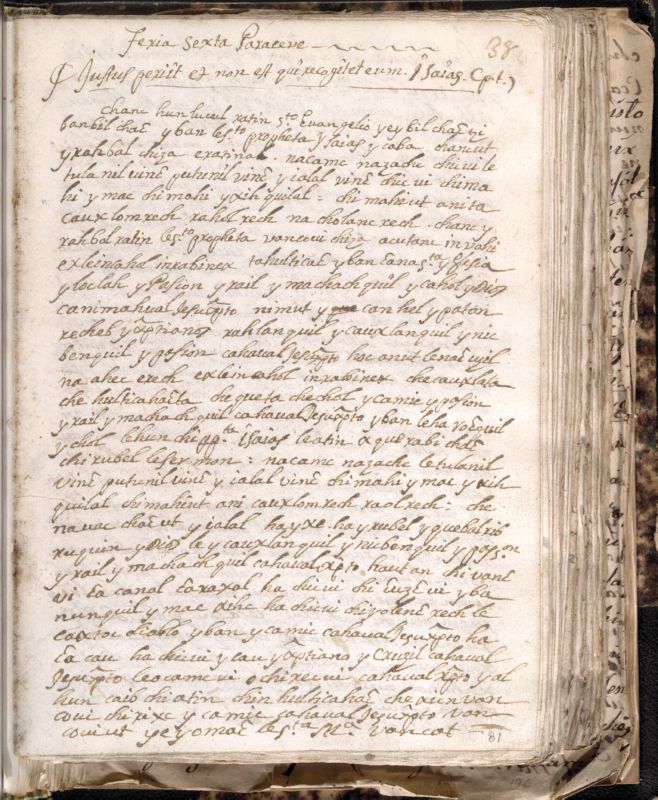 feria sexta Paraceve
38
Justus periit et non est qui recogitet eum. Isaias. Cpt.
chanc hun lucal ratin sto Evangelio yeybil
banbil y ban le sto propheta ysaias y caba chancut
y rahbal chiza exatinal. nacamc nazache chicui le
tulanil vinc putunil vinc y calal vinc chicui chima
hi y mac chimahi y xihquilal: chi mahiut anita
cauxlomrech rahol rech na cholanc rech. chanc y
rahbal ratin le sto propheta vancoui chiza acutanc invahi
exleincahol inxabinex tahulticac y ban
y toclah y Pasion y rail y machachquil y cahol y Dios
canimahual Jesuxpto nimut y can hel y paton
recheb y xptianos rahlanquil y cauxlanquil y nic
benquil y pasion cahaual Jesuxpto hoc anut
na ahec erech exleincahol inxabinex che cauxlala
che hulticahacta che queta chechol y camic y pasion
y rail y machachquil cahaual Jesuxpto y ban leha
y chol lehun chi ppta ysaias leatin
chi rubel le sermon: nacamc nazache le tulanil
vinc putunil vinc y calal vinc chi mahi y mac y xih
quilal chi mahiut ani cauxlomrech raolrech: che
nauac chacut y calal hayxe. hay rubel y quebal rib
xuquin y Dios le y cauxlanquil y nicbenquil y pasion
y rail y machachquil cahaual xpto hautan chi vanc
vi canal ha chicui chi vi y ba
nunquil y mac ha chicui chi yolenc rech le
caxtoc diablo y ban y camic cahaual Jesuxpto ha
cau ha chicui y cau y xptiano y Cruzil cahaual
Jesuxpto leocamc vi ochixecui cahaual xpto y al
hun caib chi atin chin hulticahac che van
coui chi rixc y camic cahaual Jesuxpto van
coui ut yeyomac le sta Mce vancat
81